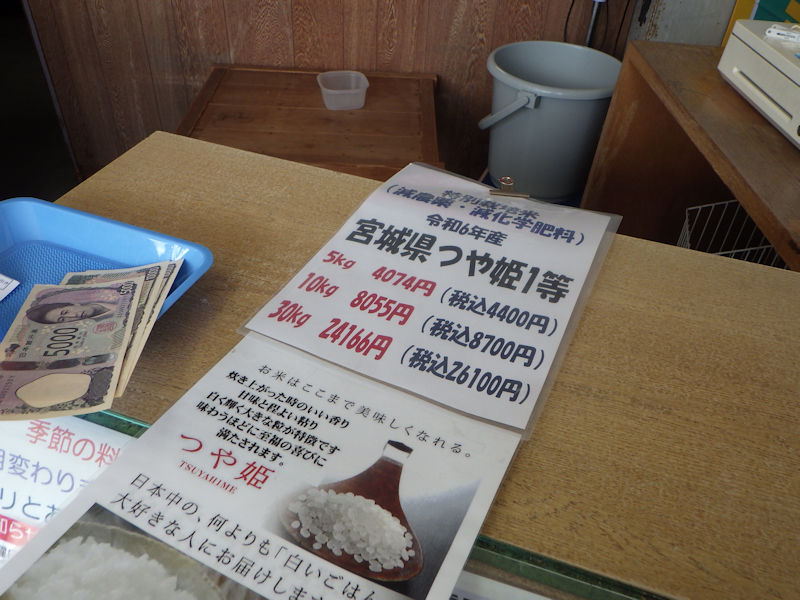 特別栽培米
(減農薬・減化学肥料)
令和6年産
宮城県つや姫1等
5kg 4074円 (税込4400円)
10kg 8055円 (税込8700円)
30kg 24166円 (税込26100円)
お米はここまで美味しくなれる。
炊き上がった時のいい香り
甘味と程よい粘り
白く輝く大きな粒が特徴です
味わうほどに至福の喜びに
満たされます。
つや姫
TSUYAHIME
日本中の、何よりも「白いごはん
大好きな人にお届けします
季節の料
変わりま
リとお
5000